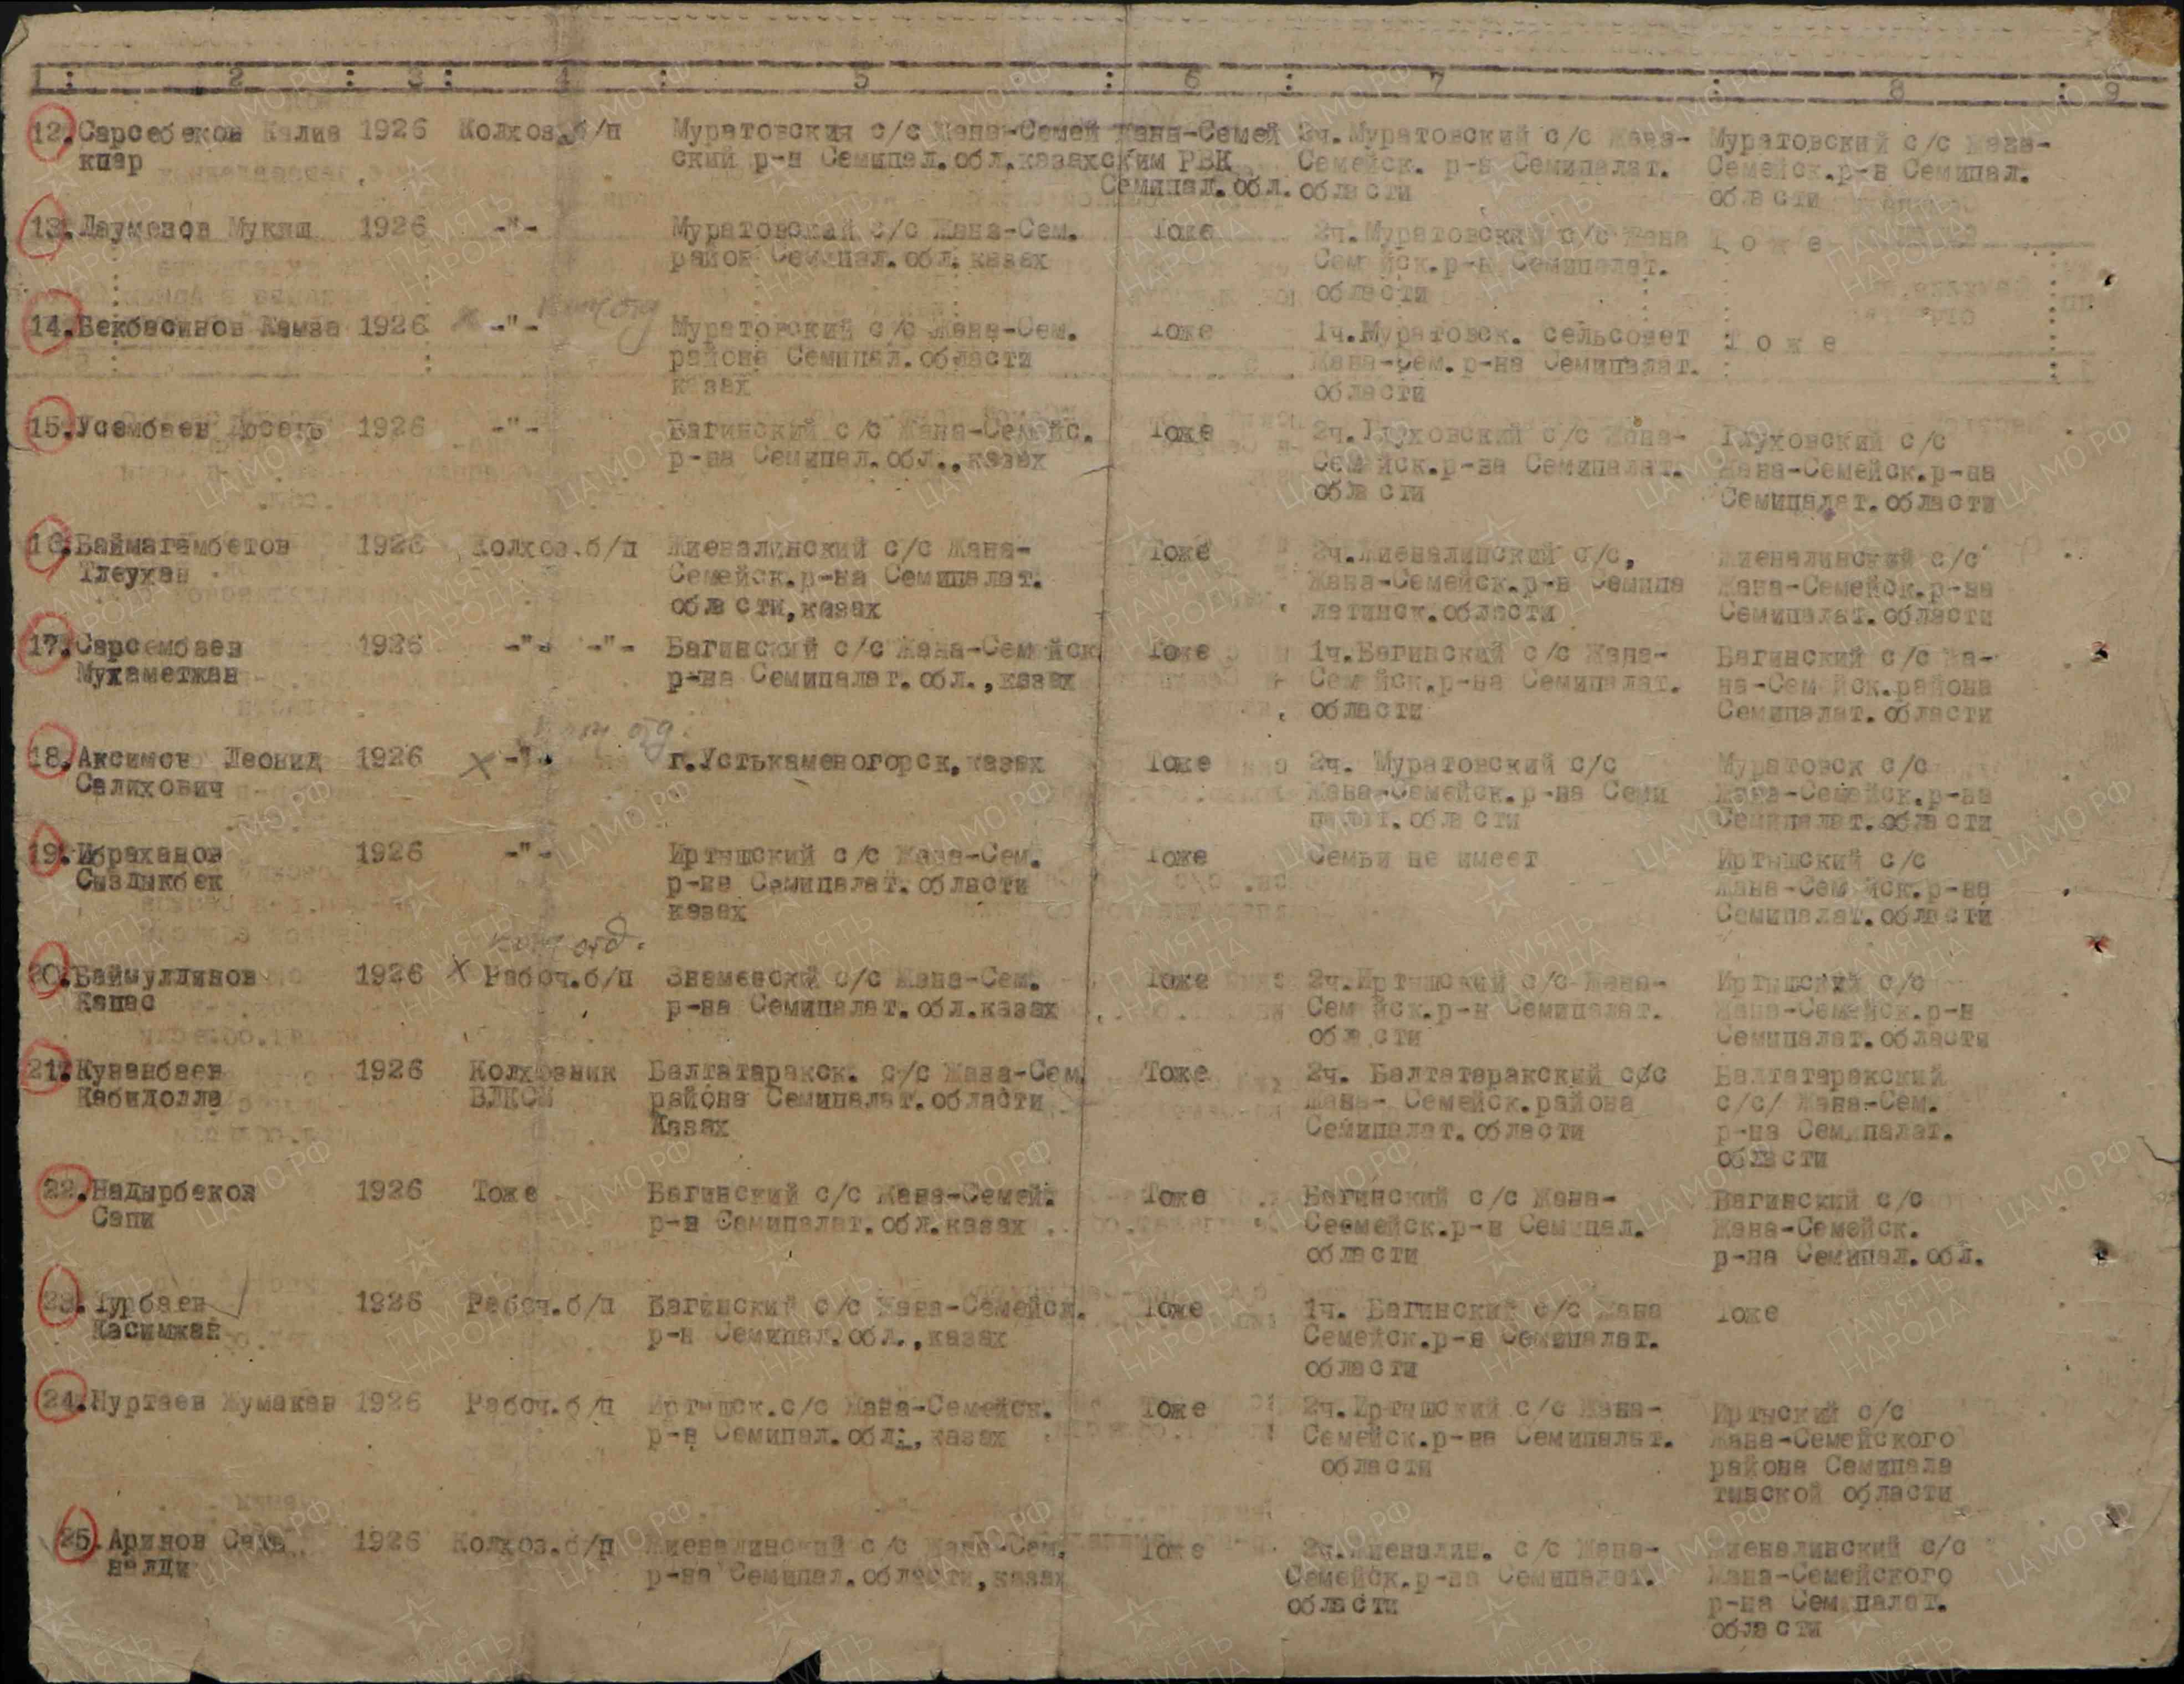 1 : 2 : 3 : 4 : 5 : 6 : 7 : 8 : 9
12. Сарсебеков Калиа 1926 Колхоз. б/п Муратовския с/с Жана-Семей Жана-Семей 2ч. Муратовский с/с Жана- Муратовский с/с Жана-
кпар ский р-н Семипал. обл. казахским РВК Семейск. р-н Семипалат. Семейск. р-н Семипал.
Семипал. обл. области области
13. Лауменов Мукиш 1926 -"- Муратовский с/с Жана-Сем. Тоже 2ч. Муратовский с/с Жана Т о ж е
район Семипал. обл. казах Сем йск. р-н Семипалат.
области
14. Бекбасинов Камза 1926 х -"- Муратовский с/с Жана-Сем. Тоже 1ч. Муратовск. сельсовет Т о ж е
района Семипал. области Жана-Сем. р-на Семипалат.
казах области
15. Усембаев 1926 -"- Багинский с/с Жана-Семейс. Тоже 2ч. Глуховский с/с Жана- Глуховский с/с
р-на Семипал. обл., казах Семейск. р-на Семипалат. Жана-Семейск. р-на
области Семипалат. области
16. Баймагамбетов 1926 Колхоз. б/п Жиеналинский с/с Жана- Тоже 2ч. Жиеналинский с/с, Жиеналинский с/с
Тлеухан Семейск. р-на Семипалат. Жана-Семейск. р-н Семипа Жана-Семейск. р-на
области, казах латинск. области Семипалат. области
17. Сарсембаев 1926 -"- -"- Багинский с/с Жана-Сем йск Тоже 1ч. Багинский с/с Жана- Багинский с/с Жа-
Мухаметжан р-на Семипалат. обл., казах Семейск. р-на Семипалат. на-Сем йск. района
области Семипалат. области
18. Аксимов Леонид 1926 х -"- г. Устькаменогорск, казах Тоже 2ч. Муратовский с/с Муратовск с/с
Салихович Жана-Семейск. р-на Семи Жана-Семейск. р-на
палат. области Семипалат. области
19. Ибраханов 1926 -"- Иртышский с/с Жана-Сем. Тоже Семьи не имеет Иртышский с/с
Сыздыкбек р-на Семипалат. области Жана-Сем йск. р-на
казах Семипалат. области
отд.
20. Баймуллинов 1926 х Рабоч. б/п Знаменский с/с Жана-Сем. Тоже 2ч. Иртышский с/с Жана- Иртышский с/с
Капас р-на Семипалат. обл. казах Сем йск. р-н Семипалат. Жана-Семейск. р-н
области Семипалат. области
21. Куванбаев 1926 Колхозник Балтатаракск. с/с Жана-Сем. Тоже 2ч. Балтатаракский с/с Балтатаракский
Кабидолла ВЛКСМ района Семипалат. области Жана- Семейск. района с/с/ Жана-Сем.
Казах Семипалат. области р-на Семипалат.
области
22. Надырбеков 1926 Тоже Багинский с/с Жана-Семей. Тоже Багинский с/с Жана- Багинский с/с
Сапи р-н Семипалат. обл. казах Сеемейск. р-н Семипал. Жана-Семейск.
области р-на Семипал. обл.
23. Турбаев 1926 Рабоч. б/п Багинский с/с Жана-Семейск. Тоже 1ч. Багинский с/с Жана Тоже
Касимжан р-н Семипал. обл., казах Семейск. р-н Семипалат.
области
24. Нуртаев Жумакан 1926 Рабоч. б/п Иртышск. с/с Жана-Семейск. Тоже 2ч. Иртышский с/с Жана- Иртыский с/с
р-н Семипал. обл., казах Семейск. р-на Семипалат. Жана-Семейского
области района Семипала
тинской области
25. Аринов Сать 1926 Колхоз. б/п Жиеналинский с/с Жана-Сем. Тоже 2ч. Жиеналин. с/с Жана- Жиеналинский с/с
налди р-на Семипал. области, казах Семейск. р-на Семипалат. Жана-Семейского
области р-на Семипалат.
области